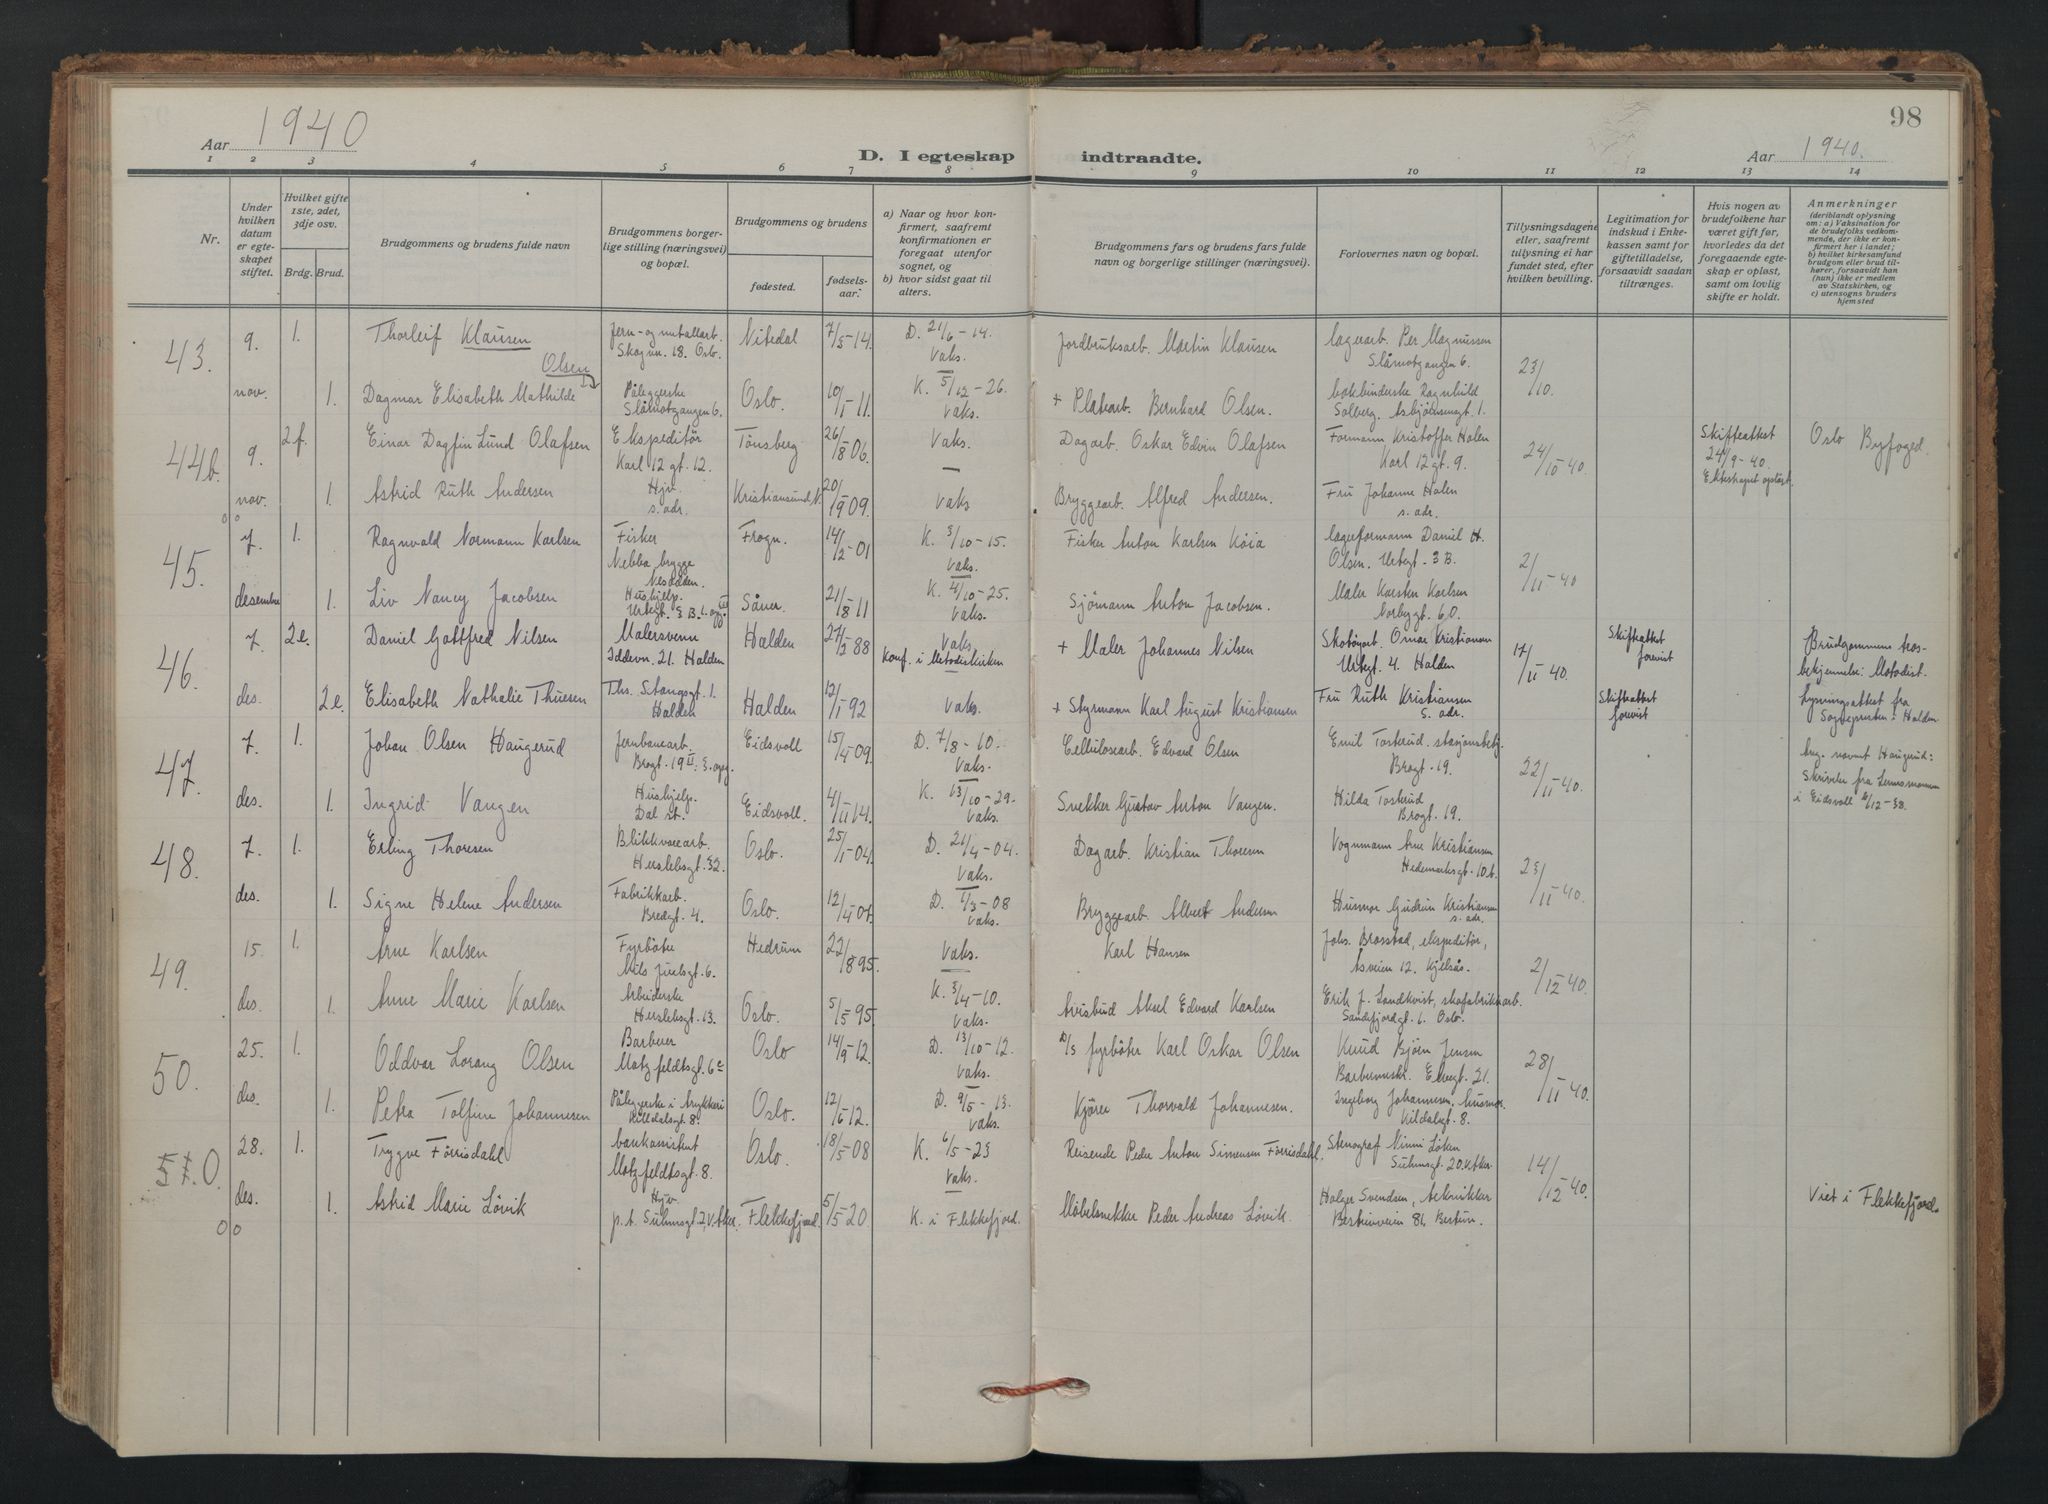 98
Aar 1940
D. I egteskap indtraadte.
Aar 1940.
1 2 3 4 5 6 7 8 9 10 11 12 13 14
Nr.
Under hvilken datum er egteskapet stiftet.
Hvilket gifte 1ste, 2det, 3dje osv.
Brdg. Brud.
Brudgommens og brudens fulde navn
Brudgommens borgerlige stilling (næringsvei) og bopæl.
Brudgommens og brudens
fødested.
fødselsaar.
a) Naar og hvor konfirmert, saafremt konfirmationen er foregaat utenfor sognet, og
b) hvor sidst gaat til alters.
Brudgommens fars og brudens fars fulde navn og borgerlige stillinger (næringsvei).
Forlovernes navn og bopæl.
Tillysningsdagene eller, saafremt tillysning ei har fundet sted, efter hvilken bevilling.
Legitimation for indskud i Enkekassen samt for giftetilladelse, forsaavidt saadan tiltrænges.
Hvis nogen av brudefolkene har været gift før, hvorledes da det foregaaende egteskap er opløst, samt om lovlig skifte er holdt.
Anmerkninger
(deriblandt oplysning om: a) Vaksination for de brudefolks vedkommende, der ikke er konfirmert her i landet; b) hvilket kirkesamfund brudgom eller brud tilhører, forsaavidt han (hun) ikke er medlem av Statskirken, og c) utensogns bruders hjemsted
43. 9. 1. Thorleif Klausen Jern- og metallarb. Skogvn. 18. Oslo. Nitedal 7/5-14. D. 21/6-14. Vaks. Jordbruksarb. Martin Klausen lagerarb. Per Magnussen Slåmotgangen 6. 23/10.
nov. 1. Dagmar Elisabeth Mathilde Olsen Påleggerske Slåmotgangen 6. Oslo. 10/1-11. K. 5/12-26. Vaks. + Platearb. Bernhard Olsen. bokbinderske Ragnhild Solberg. Asbjørnsensgt. 1.
44b. 9. 2f. Einar Dagfin Lund Olafsen Ekspeditør Karl 12 gt. 12. Tønsberg 26/8 06. Vaks. Dagarb. Oskar Edvin Olafsen Formann Kristoffer Holen Karl 12 gt. 9. 24/10-40 Skifteattest 24/9-40. Ekteskapet opløst. Oslo Byfoged.
nov. 1. Astrid Ruth Andersen Hjv. s. adr. Kristiansund N. 20/1909. Vaks Bryggearb. Alfred Andersen. Fru Johanne Holen s. adr.
45. 7. 1. Ragnvald Normann Karlsen Fisker Nebba brygge Nesodden. Frogn. 14/2-01 K. 3/10-15. Vaks. Fisker Anton Karlsen Köia lagerformann Daniel H. Olsen. Urtegt. 3 B. 2/11-40
desember 1. Liv Nancy Jacobsen Hushjelp. Urtegt. 3 B. Såner. 21/8-11 K. 4/10-25. Vaks. Sjömann Anton Jacobsen. Maler Karsten Karlsen Norbygt. 60.
46. 7. 2e. Daniel Gottfred Nilsen Malersvenn Iddevn. 21. Halden Halden 27/2-88 Vaks. Konf. i Metodistkirken + Maler Johannes Nilsen Omar Kristiansen Urtegt. 4. Halden 17/11 40. Skifteattest forevist Brudgommens trosbekjennelse: Metodist.
des. 2e. Elisabeth Nathalie Thuesen Ths. Stangsgt. 1. Halden Halden 12/1 92 Vaks. + Styrmann Karl August Kristiansen Fru Ruth Kristiansen s. adr. Skifteattest forevist Lysningsattest fra Sognepresten i Halden
47. 7. 1. Johan Olsen Haugerud Jernbanearb. Brogt. 19 II: 3. opg. Eidsvoll 15/4 09. D. 7/8-10. Vaks. Cellulosearb. Edvard Olsen Emil Tosterud. stasjonsbetj. Brogt. 19. 22/11-40. Ang. navnet Haugerud: Skrivelse fra Lensmannen i Eidsvoll 6/12-38.
des. 1. Ingrid Vangen Hushjelp. Dal st. Eidsvoll. 4/11 14. K. 13/10-29. Vaks. Snekker Gustav Anton Vangen. Hilda Tosterud Brogt. 19.
48. 7. 1. Erling Thoresen Blikkvarearb. Herslebsgt. 32. Oslo. 25/1-04. D. 21/4-04. Vaks. Dagarb. Kristian Thoresen Vognmann Arne Kristiansen Hedemarksgt. 10 b. 23/11-40.
des. 1. Signe Helene Andersen Fabrikkarb. Bredgt. 4. Oslo. 12/4-07. D. 1/3-08 Vaks. Bryggearb. Albert Andersen Husmor Gudrun Kristiansen s. adr.
49. 15. 1. Arne Karlsen Fyrböter Nils Juelsgt. 6. Hedrum 22/8 95. Vaks. Karl Hansen Johs. Brosstad, ekspeditör, Åsveien 12. Kjelsås. 2/12 40.
des. 1. Anne Marie Karlsen Arbeiderske Herslebsgt. 13. Oslo. 5/5 95. K. 3/4-10. Vaks. Avisbud Aksel Edvard Karlsen Erik J. Landkvist, skofabrikkarb. Sandefjordgt. 1. Oslo.
50. 25. 1. Oddvar Lorang Olsen Barberer Motzfeldtsgt. 6c Oslo 14/9-12. D. 13/10-12. Vaks. D/S fyrböter Karl Oskar Olsen Knud Bjørn Jensen Barbermestr. 28/11 40.
des. 1. Petra Tolfine Johannesen Pålegerske i trykkeri Kildalsgt. 8. Oslo. 12/5 12. D. 9/5-13. Vaks. Kjörer Thorvald Johannesen. Ingeborg Johannesen, husmor Kildalsgt. 8.
51.0. 28. 1. Trygve Förrisdahl bankassistent Motzfeldtsgt. 8. Oslo. 18/5-08 K. 6/5-23 Vaks. Reisende Peder Anton Simensen Förrisdahl. Stenograf Ninni Löken Suhmsgt. 20. V. Aker. 14/12 40.
des. 1. Astrid Marie Lövik Hjv. p.t. Suhmsgt. 7, V. Aker. Flekkefjord 5/5 20 K. i Flekkefjord. Möbelsnekker Peder Andreas Lövik. Holger Svendsen, tekniker Bestumveien 81, Bestum. Viet i Flekkefjord.